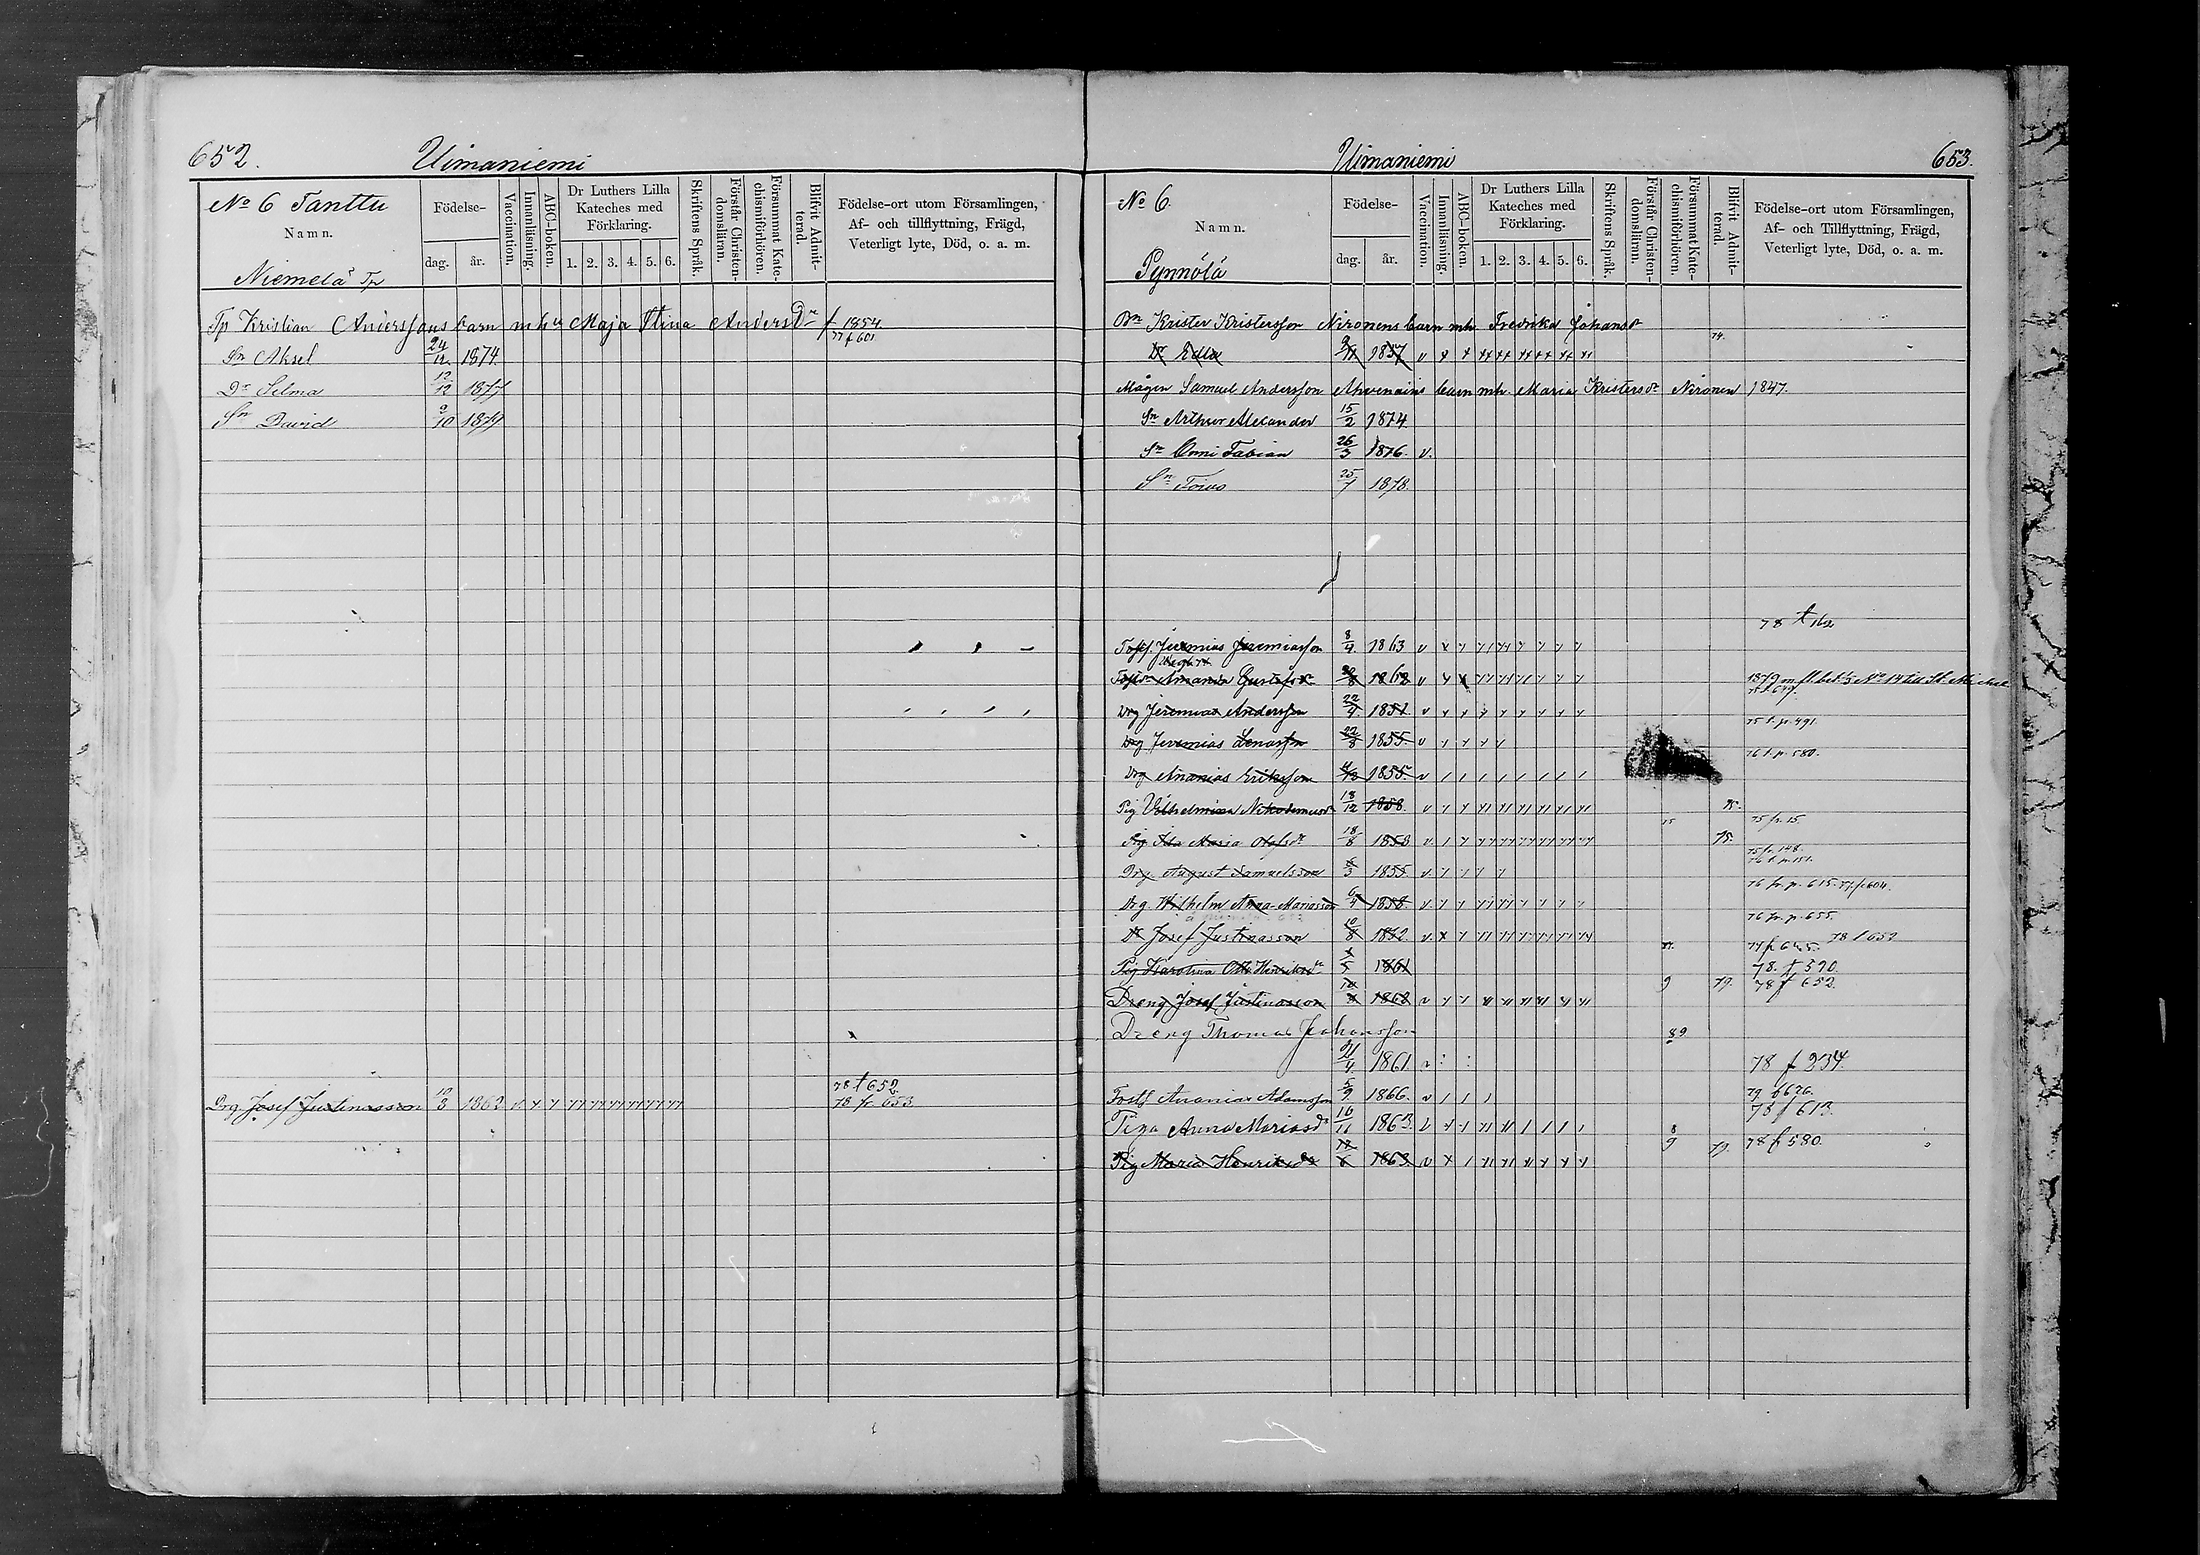 652.
Uimaniemi
No 6 Tanttu
Namn.
Niemelä Tp
Födelse-
dag.
år.
Vaccination.
Innanläsning.
ABC-boken.
Dr Luthers Lilla
Kateches med
Förklaring.
1. 2. 3. 4. 5. 6.
Skriftens Språk.
Förstår Christen-
domsläran.
Försummat Kate-
chismiförhören.
Blifvit Admit-
terad.
Födelse-ort utom Församlingen,
Af- och tillflyttning, Frägd,
Veterligt lyte, Död, o. a. m.
Tp Kristian Anderssons barn m h u Maja Stina Andersdr f 1854
77 f 601
Sn Aksel 24/12 1874.
Dr Selma 12/12 1877
Sn David 2/10 1879
78 t 652
Drg Josef Justinasson 10/8 1862 v x y 78 fr 653
Uimaniemi
653.
No 6.
Namn.
Pynnölä
Födelse-
dag.
år.
Vaccination.
Innanläsning.
ABC-boken.
Dr Luthers Lilla
Kateches med
Förklaring.
1. 2. 3. 4. 5. 6.
Skriftens Språk.
Förstår Christen-
domsläran.
Försummat Kate-
chismiförhören.
Blifvit Admit-
terad.
Födelse-ort utom Församlingen,
Af- och Tillflyttning, Frägd,
Veterligt lyte, Död, o. a. m.
Bn Krister Kristersson Nironens barn mh. Fredrika Johansdr
74.
Dr Edla 1857 v x x
Mågen Samuel Andersson Ahvenains barn mh. Maria Kristersdr Nironen 1847.
Sn Arthur Alexander 15/2 1874
Sn Onni Fabian 26/3 1876. v.
Sn Toivo 25/7 1878.
78 t 162
Fosts. Jeremias Jeremiasson 8/4 1863 v x y
Fostdr Amanda Gustafsdr 1862 v 1879 m fl. bet. No 14 till St. Michel
Drg Jeremias Andersson 22/4 1851 v
75 t. p. 491.
Drg Jeremias Lenasson 22/8 1855. v
76 t. p. 580.
Drg Ananias Eriksson 1855. v
Pig Vilhelmina Nikodemusdr 18/12 1858. v
75 fr. 15.
Pig Ida Maria Olofsdr 18/8 1853 v 75.
75 fr. 148.
76 t. p. 151.
Drg. August Samuelsson 6/3 1855 v
76 fr. p. 615. 77 f. 604.
Drg. Wilhelm Anna-Mariasson 1858. v.
76 fr. p. 655.
Dr Josef Justinasson 10/8 1862. v. x y
77 f. 645. 78 t 652
Pig Karolina Otto Henriksdr 1861
78. t 590.
78 f 652
Dreng Josef Justinasson 1862 v 9 79.
Dreng Thomas Johansson 89
21/4 1861 v 78 f 234.
Fosts Ananias Adamsson 5/9 1866. v 79 t 626.
78 f 613.
Piga Anna Mariasdr 10/11 1863. v 8
78 f 580.
Pig Maria Henriksdr 12/6 1863 v x 9 79.